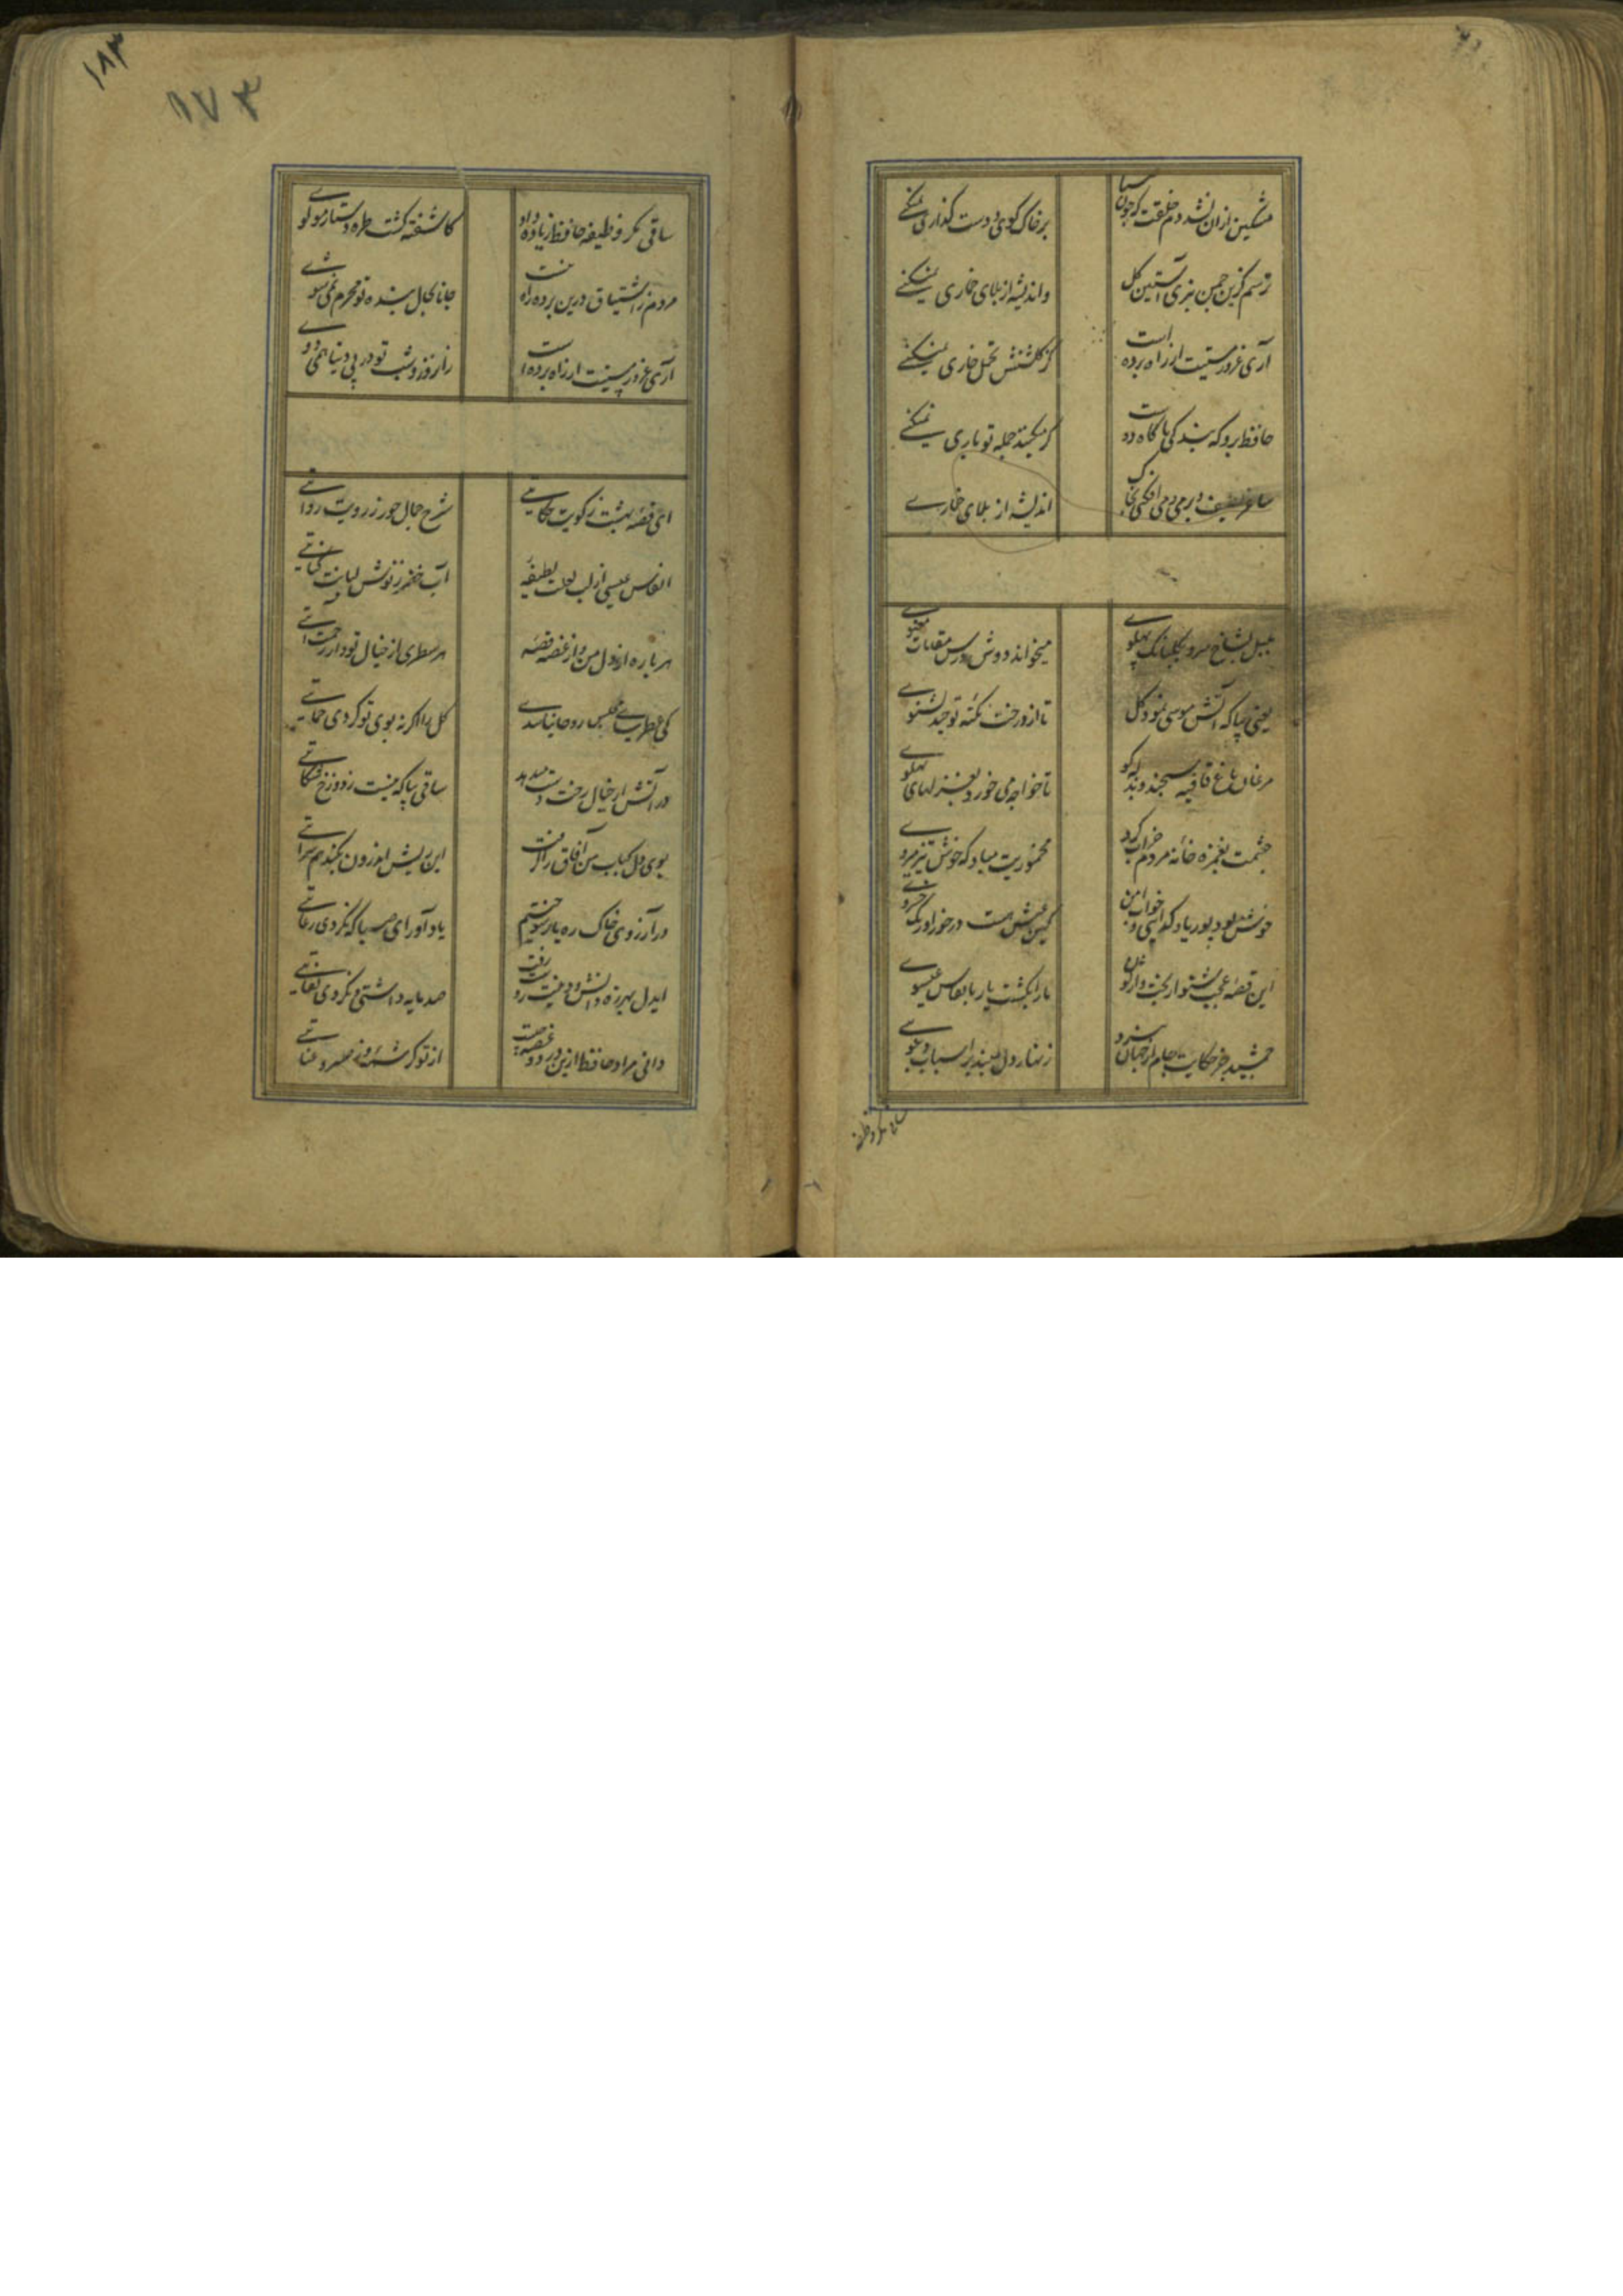 مشکین ازان نشد دم خلقت که چون صبا
بر خاک کوی دوست گذاری نمیکنی
ترسم کزین چمن نبری آستین گل
واندیشه از بلای خاری نمیکنی
آری غرور مستیت از راه برده است
کز گلشنش تحمل خاری نمیکنی
حافظ برو که بندگی بارگاه دوست
گر میکنند جمله تو باری نمیکنی
ساغر لطیف و پر می و می افکنی بخاک
اندیشه از بلای خماری
بلبل بشاخ سرو بگلبانک پهلوی
میخواند دوش درس مقامات معنوی
یعنی بیا که آتش موسی نمود گل
تا از درخت نکته توحید بشنوی
مرغان باغ قافیه سنجند و بذله کو
تا خواجه می خورد بغزلهای پهلوی
چشمت بغمزه خانه مردم خراب کرد
مخموریت مباد که خوش تیز میروی
خوش بود بوریا و کدایی و خواب امن
کین عیش نیست در خور اورنک خسروی
این قصه عجب شنو از بخت واژگون
ما را بکشت یار بانفاس عیسوی
جمشید جز حکایت جام از جهان نبرد
زنهار دل مبند بر اسباب دنیوی
۱۸۳
۱۷۳
ساقی مگر وظیفه حافظ زیاده داد
کاشفته گشت طره دستار مولوی
مردم ز اشتیاق درین پرده راه نیست
جانا بحال بنده تو محرم نمی شوی
آری غرور مستیت از راه برده است
را روز و شب تو در پی دنیا همی دوی
ای قصه بهشت ز کویت حکایتی
شرح جمال حور ز رویت روایتی
انفاس عیسی از لب لعلت لطیفه
آب خضر ز نوش لبانت کنایتی
هر پاره از دل من و از غصه قصه
هر سطری از خیال تو و از رحمت آیتی
کی عطرسای مجلس روحانیان شدی
گل را اگر نه بوی تو کردی حمایتی
در آتش ار خیال رخت دست میدهد
ساقی بیا که نیست ز دوزخ شکایتی
بوی دل کباب من آفاق را گرفت
این آتش اندرون بکند هم سرایتی
در آرزوی خاک ره یار سوختیم
یاد آور ای صبا که نکردی رعایتی
ایدل بهرزه دانش و عمرت ز دست رفت
صد مایه داشتی و نکردی کفایتی
دانی مراد حافظ ازین درد و غصه چیست
از تو کرشمه و ز خسرو عنایتی